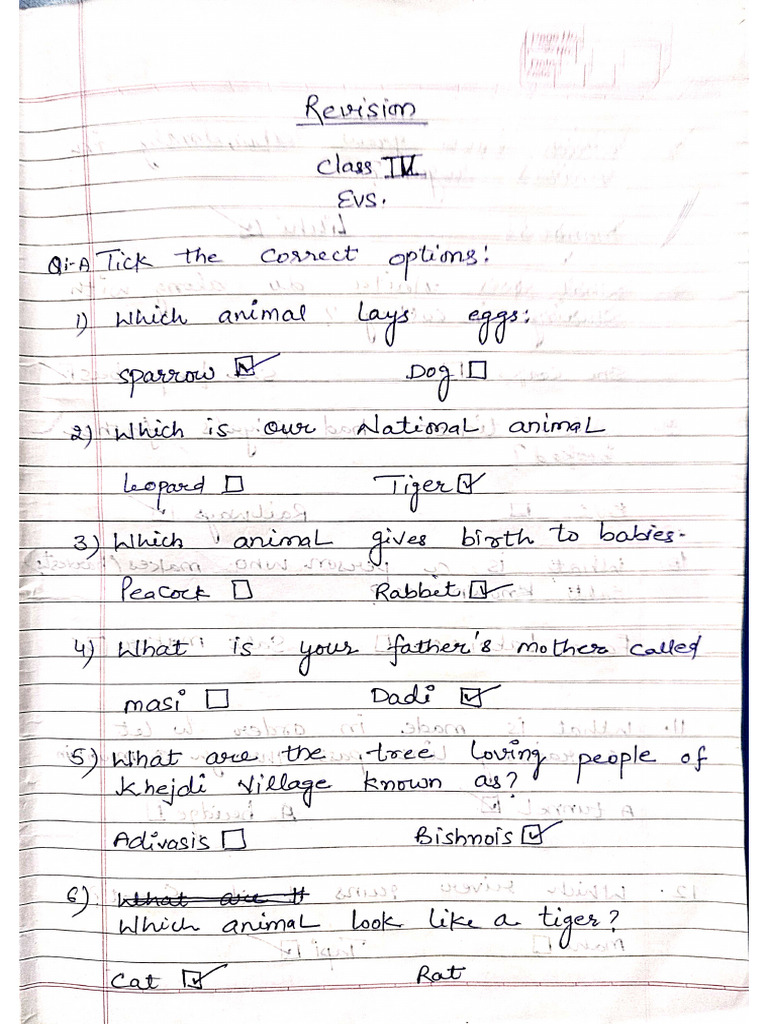 Revision
Class IV
EVS.
Q1-A Tick the correct options:
1) Which animal lays eggs:
Sparrow ☑ Dog ☐
2) Which is our National animal
Leopard ☐ Tiger ☑
3) Which animal gives birth to babies.
Peacock ☐ Rabbet ☑
4) What is your father's mother called
masi ☐ Dadi ☑
5) What are the tree loving people of
Khejdi village known as?
Adivasis ☐ Bishnois ☑
6) What are H
Which animal look like a tiger?
Cat ☑ Rat